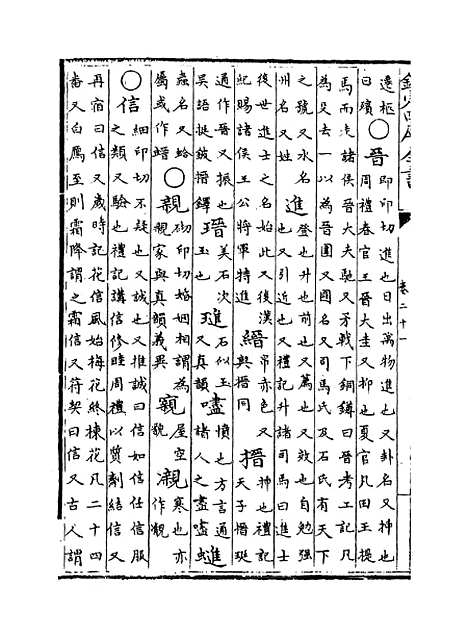 遠柩
曰殯
○晉
即印切進也日出萬物進也又卦名又抻也
周禮春官王晉大圭又抑也夏官凡田王提
馬而走諸侯晉大夫馳又矛戟下銅鐏曰晉考工記凡
為殳去一以為晉圍又國名又司馬氏及石氏有天下
之號又水名
州名又姓
進
登也升也前也又薦也又效也自勉强
也又引近也又禮記升諸司馬曰進士
後世進士之名始此又後漢
紀賜諸侯王公將軍特進
縉
帛赤色又
與搢同
搢
抻也禮記
天子搢珽
通作晉又振也
吳語挺鈹搢鐸
瑨
美石次
玉也
璡
石似玉
又真韻
嚍
憤也方言通
諸人之盡嚍
䗯
蟲名又蛤
屬或作
○親
砌印切婚姻相謂為
親家與真韻義異
寴
屋空
貌
寒也亦
作
○信
細印切不疑也又誠也又推誠曰信如信任信服
之類又驗也禮記講信修睦周禮以質劑結信又
再宿曰信又歲時記花信風始梅花終楝花凡二十四
番又白鴈至則霜降謂之霜信又符契曰信又古人謂
卷二十一